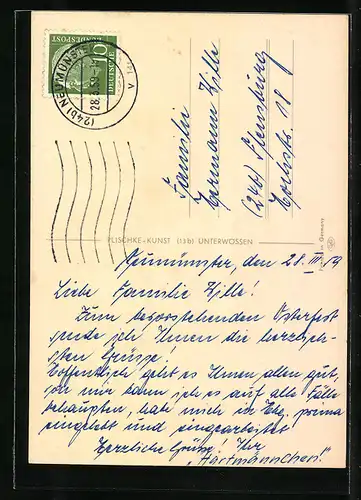 DEUTSCHE BUNDESPOST
10
(24b) NEUMÜNSTER
28.3.59
Familie
Hermann Hille
(24b) Flensburg
18
PLISCHKE-KUNST (13b) UNTERWÖSSEN
Neumünster, den 28. III. 59
Liebe Familie Hille!
Zum bevorstehenden Osterfest
sende ich Ihnen die herzlich-
sten Grüsse!
Hoffentlich geht es Ihnen allen gut,
von mir kann ich es auf alle Fälle
behaupten, hab mich in prima
eingelebt und eingearbeitet
Herzliche Grüsse! Ihr
„Hartmännchen!"